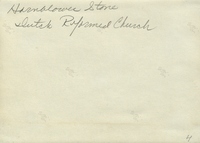 Hornblower Stone
Dutch Reformed Church
4